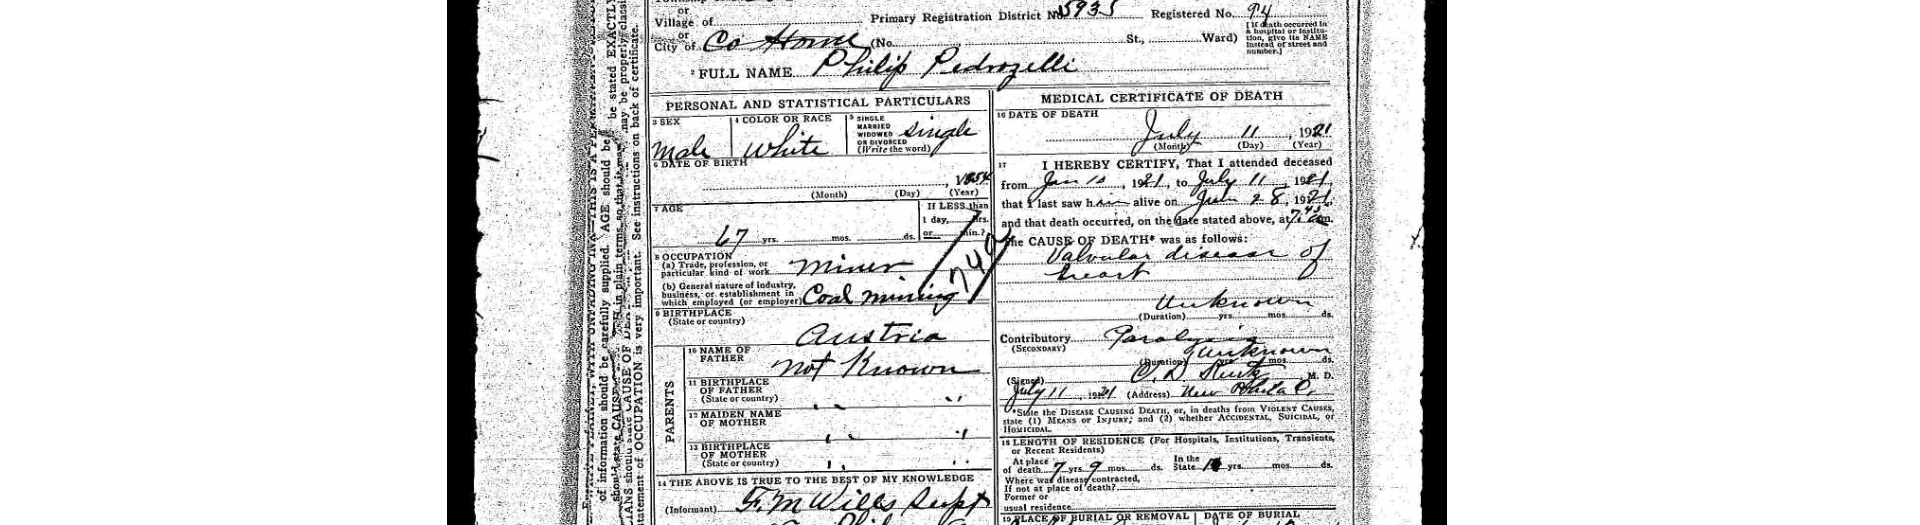 or
Village of
Primary Registration District No. 5935 Registered No. 94
or
City of Co Home (No. St., Ward)
[If death occurred in
a hospital or institu-
tion, give its NAME
instead of street and
number.]
2 FULL NAME Philip Pedrozelli
PERSONAL AND STATISTICAL PARTICULARS
3 SEX
Male
4 COLOR OR RACE
White
5 SINGLE
MARRIED
WIDOWED
OR DIVORCED
(Write the word)
Single
6 DATE OF BIRTH
, 1854
(Month) (Day) (Year)
7 AGE
If LESS than
1 day, hrs.
or min.?
67 yrs. mos. ds.
8 OCCUPATION
(a) Trade, profession, or
particular kind of work Miner
(b) General nature of industry,
business, or establishment in
which employed (or employer) Coal mining
9 BIRTHPLACE
(State or country)
Austria
PARENTS
10 NAME OF
FATHER
Not Known
11 BIRTHPLACE
OF FATHER
(State or country) " "
12 MAIDEN NAME
OF MOTHER
" "
13 BIRTHPLACE
OF MOTHER
(State or country) " "
14 THE ABOVE IS TRUE TO THE BEST OF MY KNOWLEDGE
(Informant) F. M Wills Supt
MEDICAL CERTIFICATE OF DEATH
16 DATE OF DEATH
July 11, 1921
(Month) (Day) (Year)
17 I HEREBY CERTIFY, That I attended deceased
from Jan 10, 1921, to July 11, 1921,
that I last saw him alive on 8, 1921,
and that death occurred, on the date stated above, at m.
The CAUSE OF DEATH* was as follows:
Valvular disease of
heart
Unknown
(Duration) yrs. mos. ds.
Contributory Paralysis
(SECONDARY)
unknown
(Duration) yrs. mos. ds.
(Signed) , M. D.
July 11, 1921 (Address) New Phila O.
*State the DISEASE CAUSING DEATH, or, in deaths from VIOLENT CAUSES,
state (1) MEANS OF INJURY; and (2) whether ACCIDENTAL, SUICIDAL, or
HOMICIDAL.
18 LENGTH OF RESIDENCE (For Hospitals, Institutions, Transients,
or Recent Residents)
At place
of death 7 yrs. 9 mos. ds.
In the
State yrs. mos. ds.
Where was disease contracted,
If not at place of death?
Former or
usual residence
19 PLACE OF BURIAL OR REMOVAL
DATE OF BURIAL
of information should be carefully supplied. AGE should be stated EXACTLY.
statement of OCCUPATION is very important. See instructions on back of certificate.